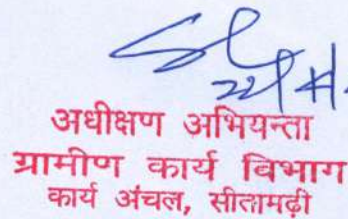 अधीक्षण अभियन्ता
ग्रामीण कार्य विभाग
कार्य अंचल, सीतामढ़ी